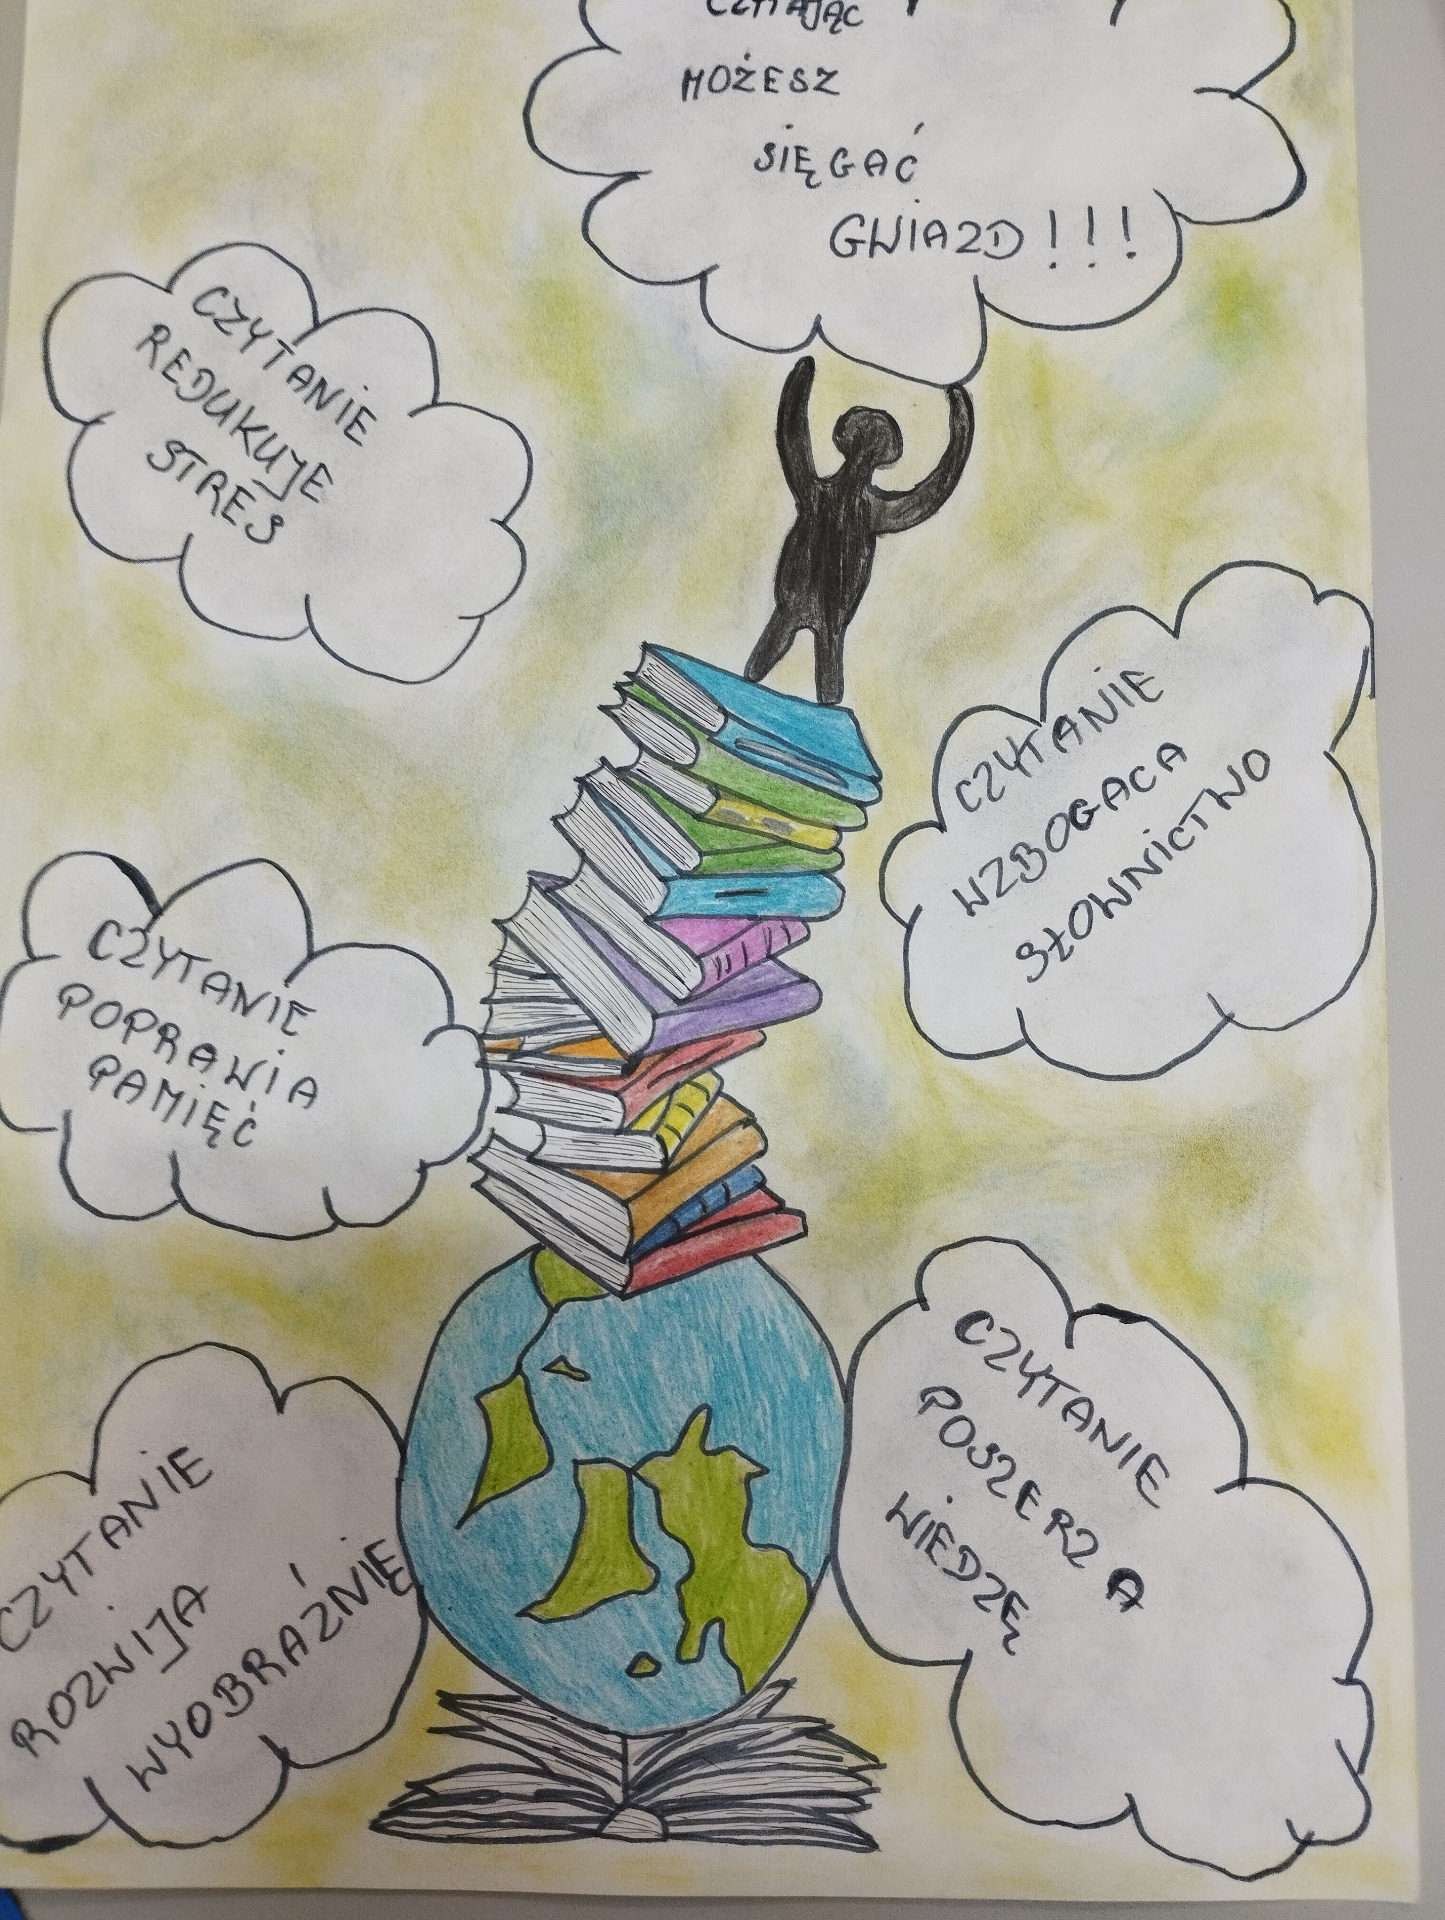 CZYTAJĄC
MOŻESZ
SIĘGAĆ
GWIAZD!!!
CZYTANIE
REDUKUJE
STRES
CZYTANIE
WZBOGACA
SŁOWNICTWO
CZYTANIE
POPRAWIA
PAMIĘĆ
CZYTANIE
POSZERZA
WIEDZĘ
CZYTANIE
ROZWIJA
WYOBRAŹNIĘ